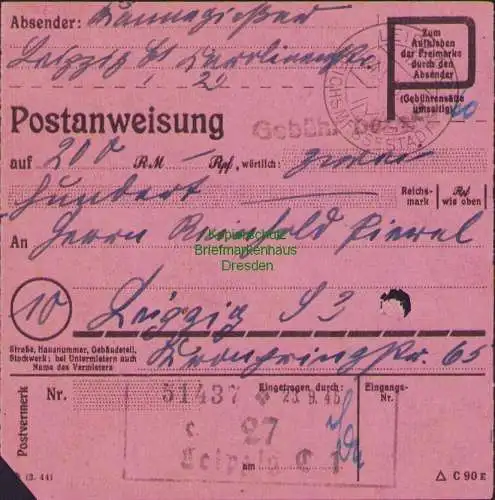 Absender: Kannegießer
Leipzig
Zum
Aufkleben
der Freimarke
durch den
Absender
(Gebührensätze
umseitig)
60
Postanweisung
Gebühr bezahlt
auf 200 RM — Rpf, wörtlich: zwei
hundert —
Reichs-
mark
Rpf
wie oben
An Herrn Reinhold
Kopierschutz
Briefmarkenhaus
Dresden
10 Leipzig S 3
Straße, Hausnummer, Gebäudeteil,
Stockwerk; bei Untermietern auch
Name des Vermieters
Kronprinzstr. 65
Postvermerk
Nr. 51437
Eingetragen durch:
Eingangs-
Nr.
23.9.45
27
am
Leipzig C 1
(3. 44)
△ C 90 E